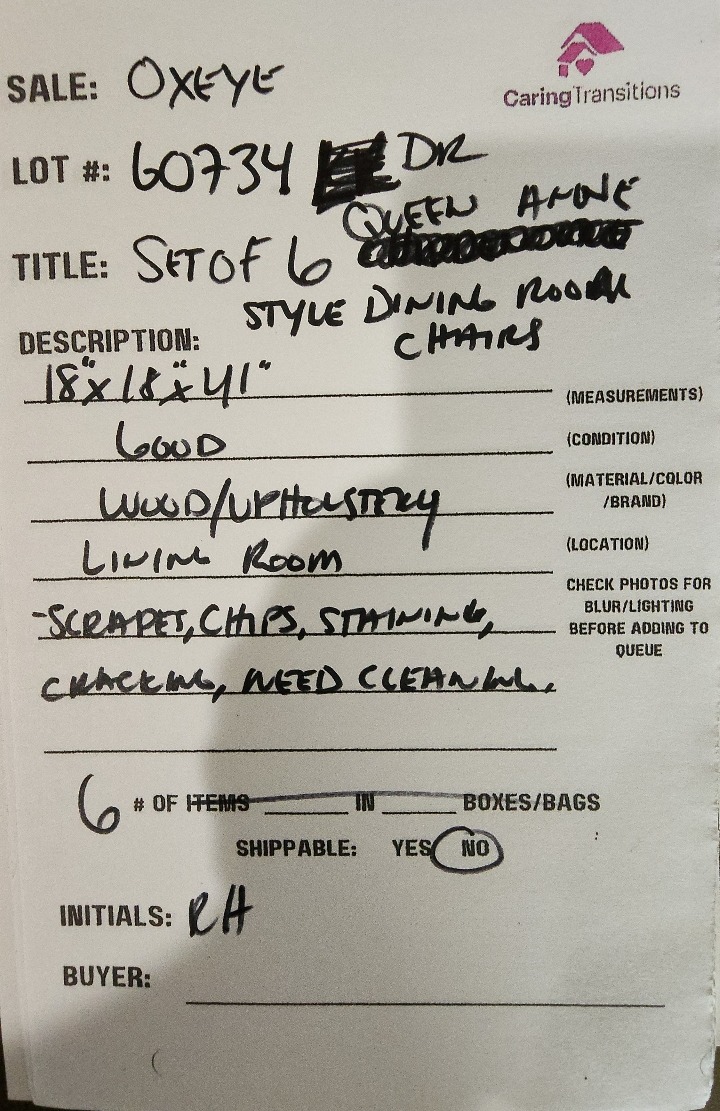 CaringTransitions
SALE: OXEYE
LOT #: 60734 DR
QUEEN ANNE
TITLE: SET OF 6
STYLE DINING ROOM
CHAIRS
DESCRIPTION:
18"x18"x41"
(MEASUREMENTS)
GOOD
(CONDITION)
WOOD/UPHOLSTERY
(MATERIAL/COLOR
/BRAND)
LIVING ROOM
(LOCATION)
-SCRAPES, CHIPS, STAINING,
CRACKING, NEED CLEANING,
CHECK PHOTOS FOR
BLUR/LIGHTING
BEFORE ADDING TO
QUEUE
6 # OF ITEMS ______ IN ______ BOXES/BAGS
SHIPPABLE: YES NO
INITIALS: RH
BUYER: